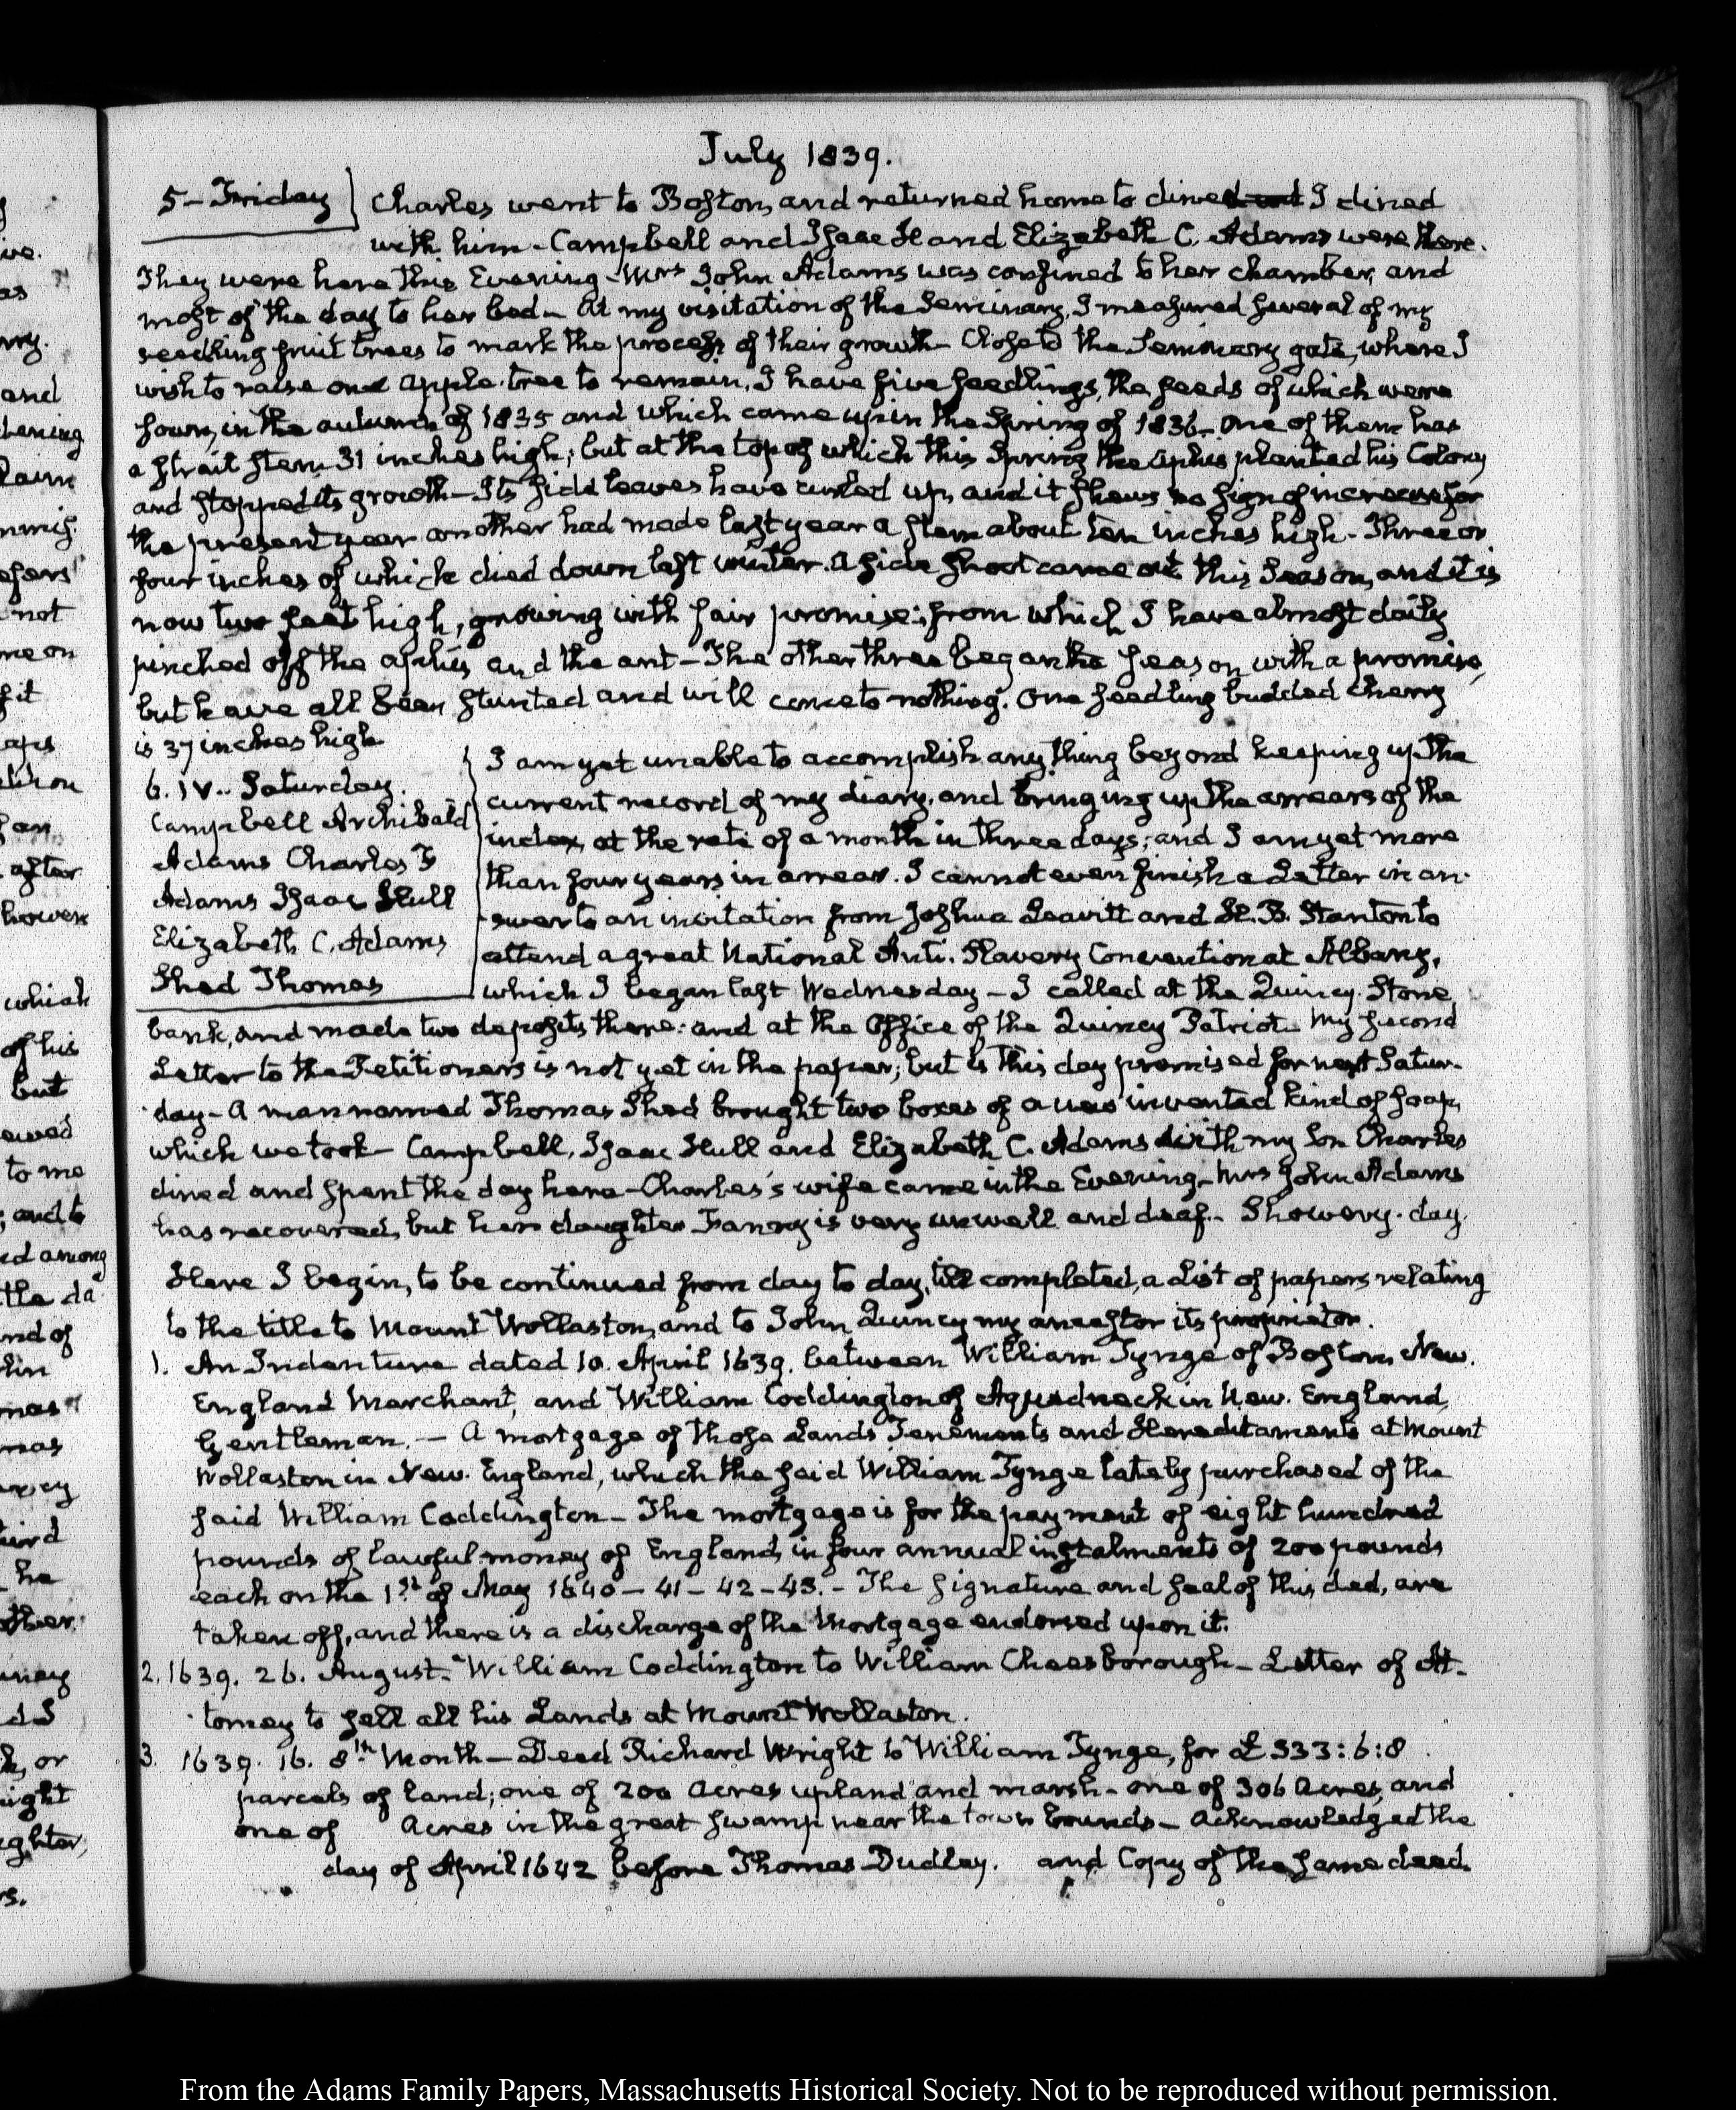 July 1839.
5 - Friday
Charles went to Boston, and returned home to dine I dined
with him - Campbell and Isaac H and Elizabeth C. Adams were there.
They were here this Evening - Mrs John Adams was confined to her chamber, and
most of the day to her bed - At my visitation of the Seminary, I measured several of my
seedling fruit trees to mark the process of their growth - Close to the Seminary gate, where I
wish to raise one apple-tree to remain, I have five seedlings, the seeds of which were
sown, in the autumn of 1835 and which came up in the Spring of 1836 - One of them has
a strait stem 31 inches high; but at the top of which this Spring the aphis planted his Colony
and stopped its growth - Its side leaves have curled up, and it shews no sign of increase for
the present year another had made last year a stem about ten inches high - Three or
four inches of which died down last winter. A side shoot came out this Season, and it is
now two feet high, growing with fair promise; from which I have almost daily
pinched off the aphis and the ant - The other three began the season with a promise,
but have all been stunted and will come to nothing. One seedling budded cherry
is 37 inches high
6. IV.. Saturday.
Campbell Archibald
Adams Charles F
Adams Isaac Hull
Elizabeth C. Adams
Shed Thomas
I am yet unable to accomplish any thing beyond keeping up the
current record of my diary, and bringing up the arrears of the
index, at the rate of a month in three days; and I am yet more
than four years in arrear. I cannot even finish a Letter in an-
swer to an invitation from Joshua Leavitt and H. B. Stanton to
attend a great National Anti-Slavery Convention at Albany,
which I began last Wednesday - I called at the Quincy Stone
bank, and made two deposits there: and at the Office of the Quincy Patriot. My second
Letter to the Petitioners is not yet in the paper; but is this day promised for next Satur-
day - A man named Thomas Shed brought two boxes of a new invented kind of soap,
which we took - Campbell, Isaac Hull and Elizabeth C. Adams with my Son Charles
dined and spent the day here - Charles's wife came in the Evening - Mrs John Adams
has recovered, but her daughter Fanny is very unwell and deaf - Showery day.
Here I begin, to be continued from day to day, till completed, a List of papers relating
to the title to Mount Wollaston, and to John Quincy my ancestor its proprietor.
1. An Indenture dated 10. April 1639. between William Tynge of Boston New.
England Marchant, and William Coddington of Aquedneck in New. England,
Gentleman. - A mortgage of those Lands Tenements and Hereditaments at Mount
Wollaston in New. England, which the said William Tynge lately purchased of the
said William Coddington - The mortgage is for the payment of eight hundred
pounds of lawful money of England, in four annual instalments of 200 pounds
each on the 1st of May 1640 - 41 - 42 - 43. - The signature and seal of this deed, are
taken off, and there is a discharge of the Mortgage endorsed upon it.
2. 1639. 26. August. - William Coddington to William Cheesborough - Letter of At-
torney to sell all his Lands at Mount Wollaston.
3. 1639. 16. 8th Month - Deed Richard Wright to William Tynge, for £333:6:8
parcels of land; one of 200 Acres upland and marsh - one of 306 Acres, and
one of Acres in the great swamp near the town bounds - Acknowledged the
day of April 1642 before Thomas Dudley. and Copy of the same deed.
From the Adams Family Papers, Massachusetts Historical Society. Not to be reproduced without permission.